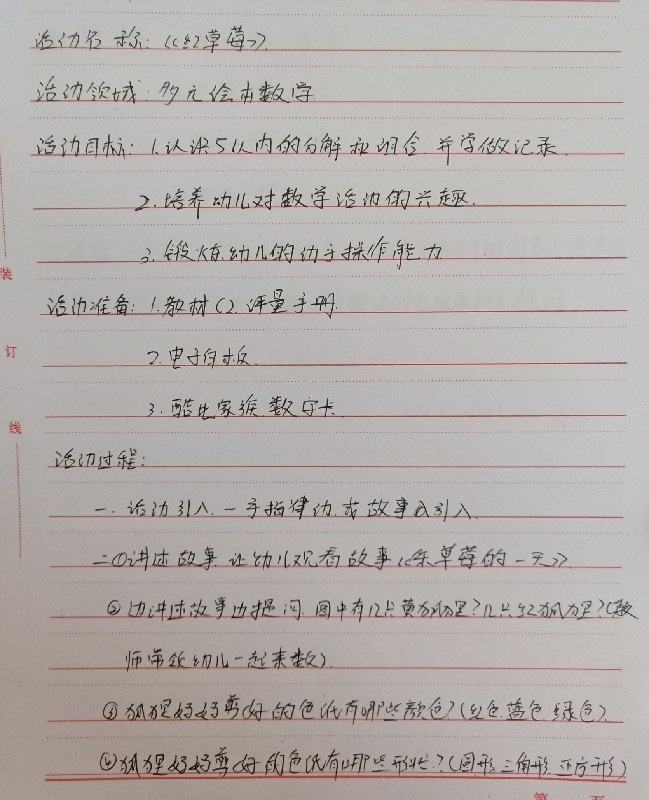 活动名称:《红草莓》
活动领域:多元绘本数学
活动目标:1.认识5以内的分解和组合,并学做记录.
2.培养幼儿对数学活动的兴趣.
3.锻炼幼儿的动手操作能力
活动准备:1.教材(2.评量手册.
2.电子白板.
3.酷比家族数字卡.
活动过程:
一.活动引入.一手指律动.或故事引入.
二①讲述故事.让幼儿观看故事《采草莓的一天》.
②边讲述故事边提问.图中有几只黄狐狸?几只红狐狸?(教
师带领幼儿一起来数)
③狐狸妈妈剪好的色纸有哪些颜色?(红色.蓝色.绿色).
④狐狸妈妈剪好的色纸有哪些形状?(圆形.三角形.正方形)
装
订
线
第 页